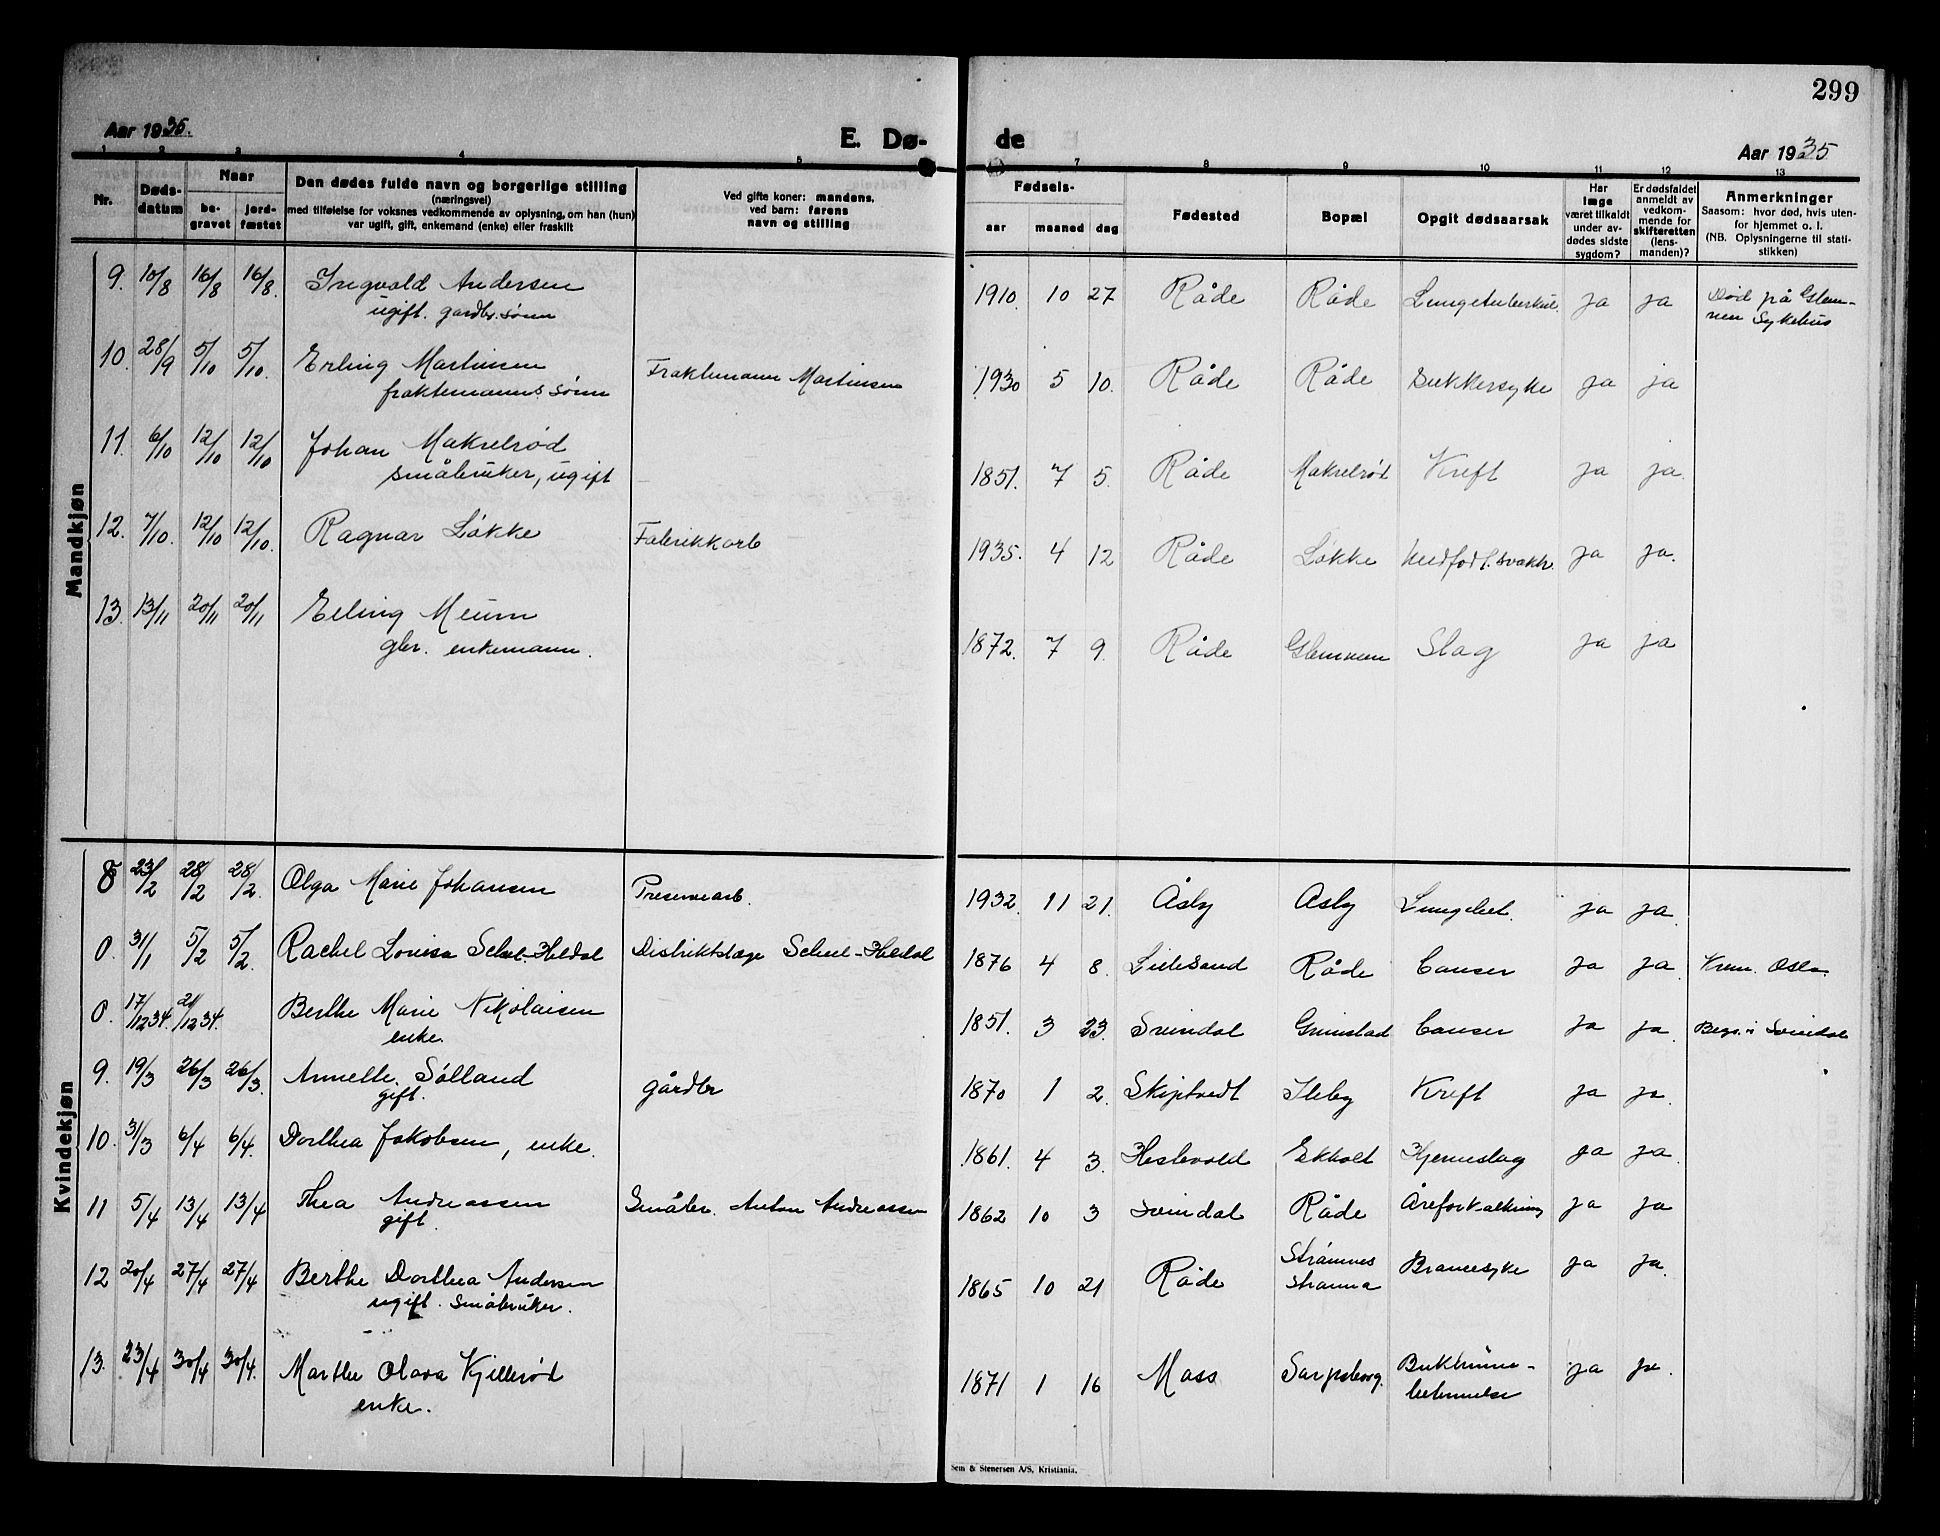 299
Aar 1935.
E. Dø-
de
Aar 1935
1 2 3 4 5 7 8 9 10 11 12 13
Nr.
Døds-
datum
Naar
be-
gravet
jord-
fæstet
Den dødes fulde navn og borgerlige stilling
(næringsvei)
med tilføielse for voksnes vedkommende av oplysning, om han (hun)
var ugift, gift, enkemand (enke) eller fraskilt
Ved gifte koner: mandens,
ved barn: farens
navn og stilling
Fødsels-
aar maaned dag
Fødested
Bopæl
Opgit dødsaarsak
Har
læge
været tilkaldt
under av-
dødes sidste
sygdom?
Er dødsfaldet
anmeldt av
vedkom-
mende for
skifteretten
(lens-
manden)?
Anmerkninger
Saasom: hvor død, hvis uten-
for hjemmet o. l.
(NB. Oplysningerne til stati-
stikken)
Mandkjøn
9. 10/8 16/8 16/8. Ingvald Andersen 1910. 10 27 Råde Råde Lungetuberkul. ja ja Død på Glem-
ugift. gardbr. sønn
nen Sykehus
10. 28/9 5/10 5/10. Erling Martinsen Fraktemann Martinsen 1930 5 10. Råde Råde Sukkersyke ja ja
fraktemanns sønn
11. 6/10 12/10 12/10 Johan Makrelrød 1851. 7 5. Råde Makrelrød Kreft ja ja.
småbruker, ugift
12. 7/10. 12/10 12/10. Ragnar Løkke Fabrikkarb 1935. 4 12 Råde Løkke Medfødt svakh. ja ja.
13. 13/11 20/11 20/11 Erling Meum 1872. 7 9. Råde Glemmen Slag ja ja
gbr. enkemann.
Kvindekjøn
8 23/2 28/2 28/2. Olga Marie Johansen Presennearb. 1932. 11 21. Åsby Åsby Lungebet. ja ja
0. 31/1 5/2 5/2. Rachel Lovisa Scheel-Hildal Distriktslæge Scheel-Hildal 1876 4 8. Lillesand Råde Canser ja ja Krem. Oslo.
0. 17/12 34. 21/12 34. Berthe Marie Nikolaisen 1851. 3 23. Svindal Grimstad Canser ja ja. Begr. i Svindal
enke.
9. 19/3 26/3 26/3. Annette Sølland gårdbr 1870 1 2. Skiptvedt Ileby Kreft ja ja.
gift.
10. 31/3 6/4 6/4. Dorthea Jakobsen, enke. 1861. 4 3. Hestevold Ekholt Hjerneslag ja ja
11 5/4 13/4 13/4 Thea Andreassen Småbr. Anton Andreassen 1862 10 3 Svindal Råde Åreforkalkning ja ja
gift.
12 20/4 27/4 27/4 Berthe Dorthea Andersen 1865 10 21 Råde Strømnes ja ja.
ugift. småbruker.
13. 23/4 30/4 30/4. Marthe Olava Kjellerød 1871 1 16 Moss Sarpsborg. Bukhinne- ja ja.
enke.
betennelse
Sem & Stenersen A/S, Kristiania.